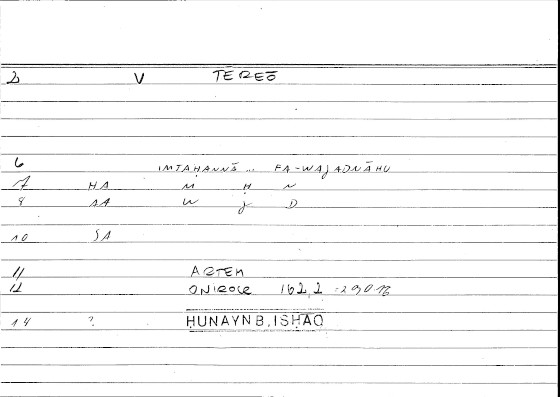 2 V TĒREŌ
6 IMTAḤANNĀ ... FA-WAJADNĀHU
7 HA M Ḥ N
8 AA W J D
10 SA
11 ARTEM
12 ONIROCR 162,2
14 ? HUNAYN B. ISHAQ